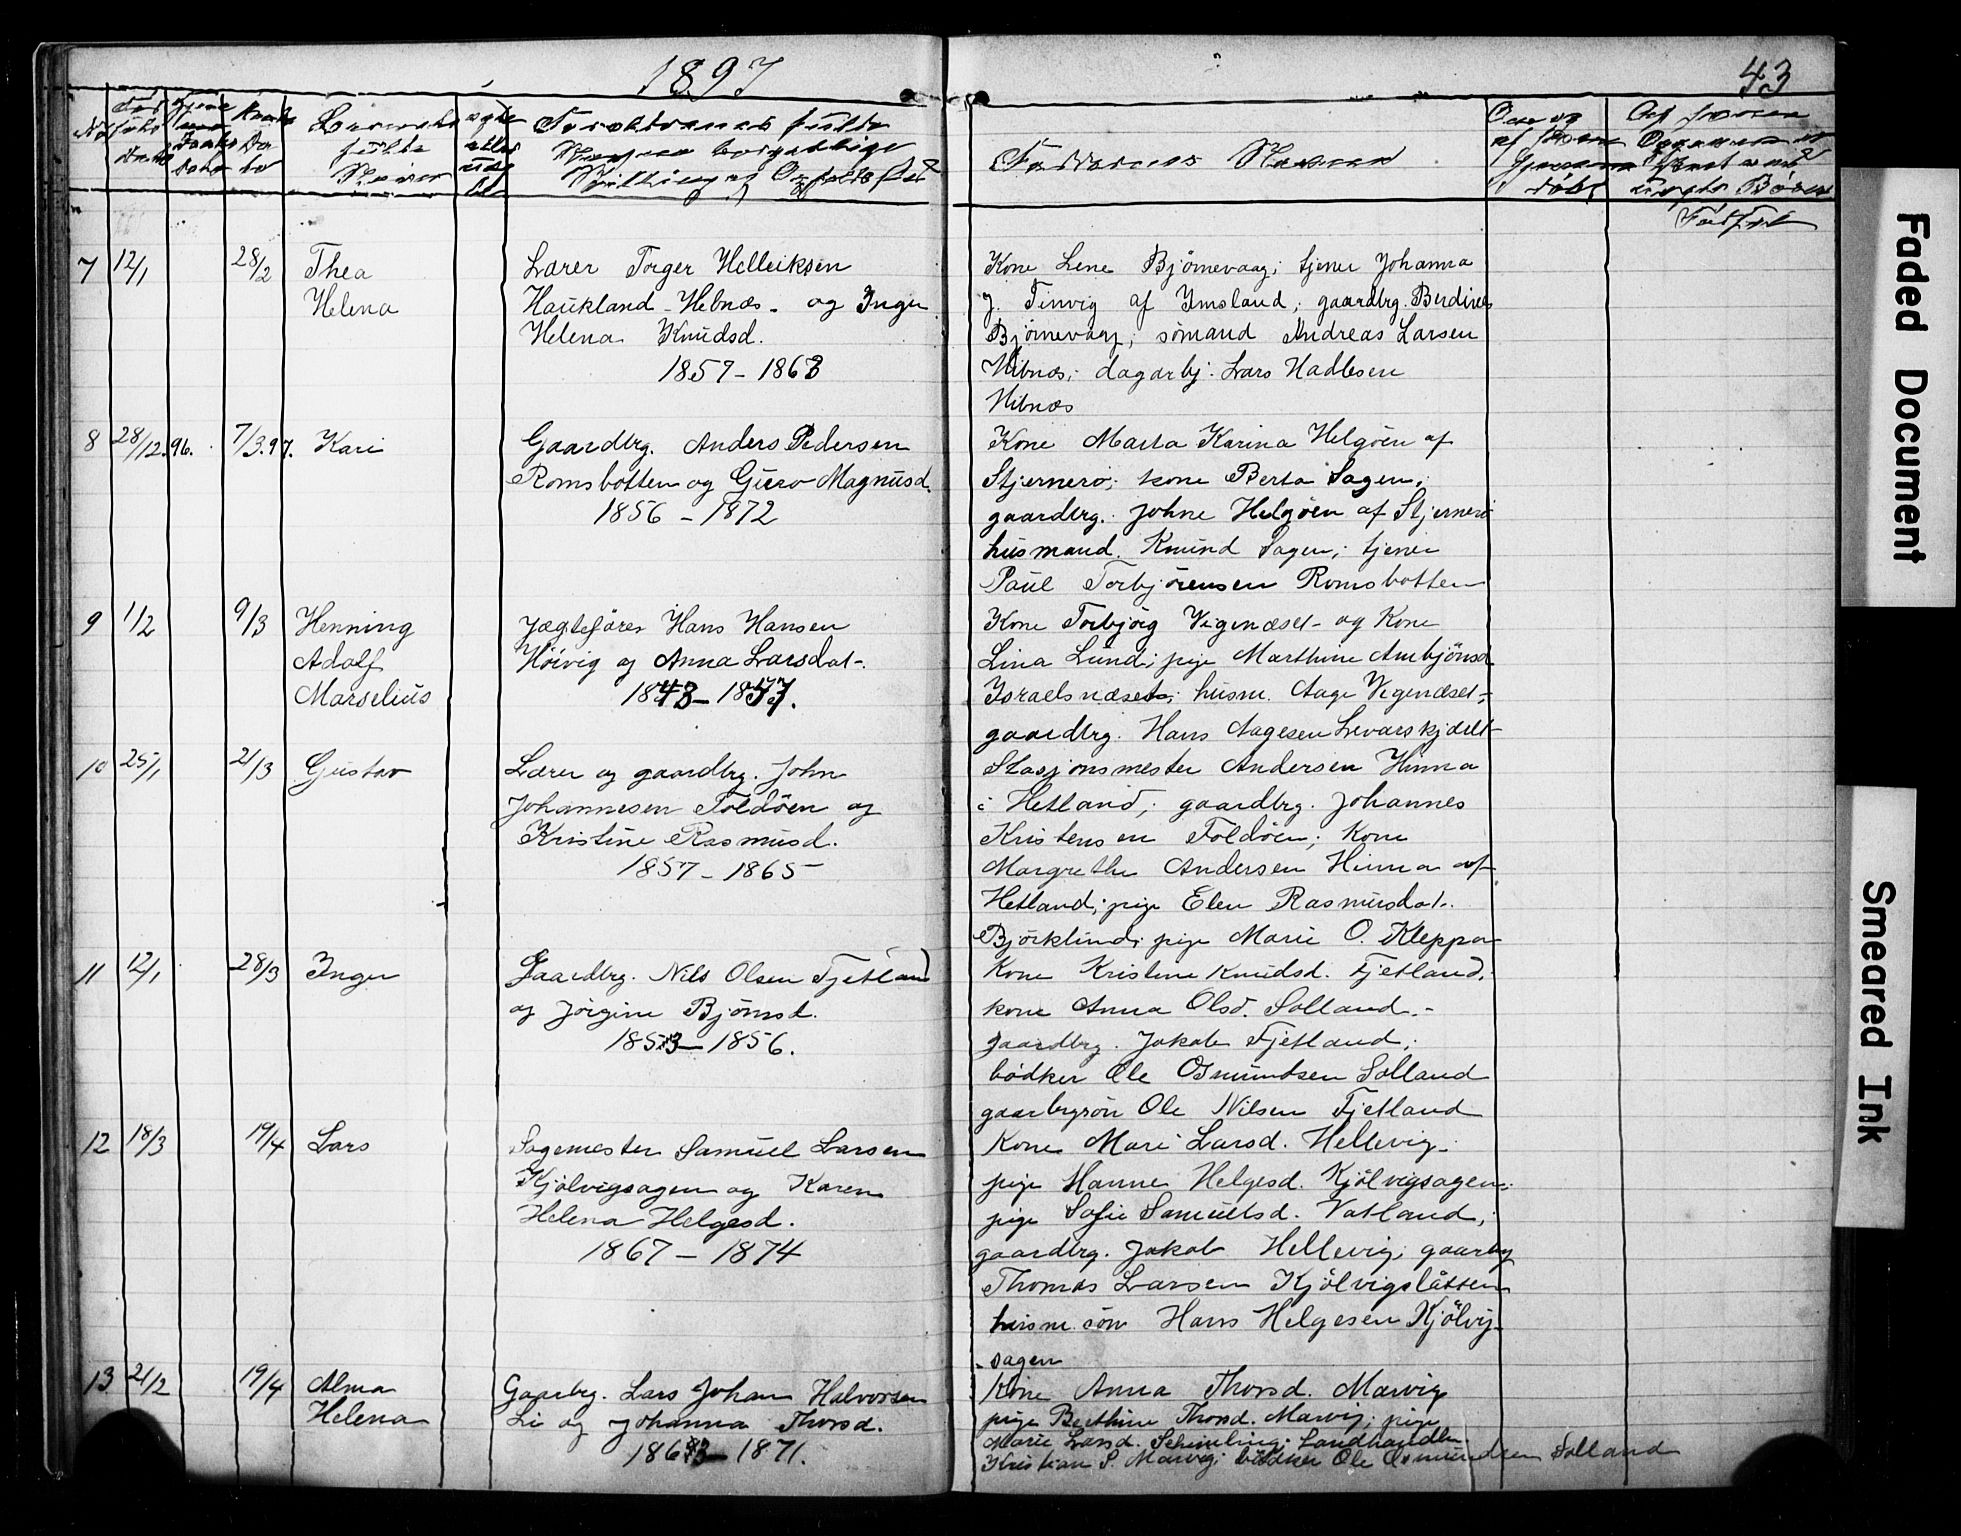 1897
43
Faddernes Navne
7 12/1 28/2 Thea
Helena
Lærer Torger Helleiksen
Haukland - Hebnæs - og Inger
Helena Knudsd.
1859 - 1863
Kone Lene Björnevaag; tjener Johanna
J. Tinvig af Imsland; gaardbrg. Berdines
Björnevaag; sömand Andreas Larsen
Hibnæs; dagarbj. Lars Hadlesen
Hibnæs
8 28/12.96. 7/3.97. Kari
Gaardbrg. Anders Pedersen
Romsbotten og Guro Magnusd.
1856 - 1872
Kone Marta Karina Helgöen af
Stjernerö; kone Berta Sagen;
gaardbrg. Johne Helgöen af Stjernerö
husmand. Knund Sagen; tjener
Paul Torbjörensen Romsbotten
9 1/2 9/3 Henning
Adolf
Marselius
Jægtefører Hans Hansen
Höivig og Anna Larsdat.
1843 - 1857.
Kone Torbjörg Vigenæset - og Kone
Lina Lund; pige Marthine Ambjönsd.
Israelsnæset; husm. Aage Vigenæset;
gaardbrg. Hans Aagesen Levarskjdelt
10 25/1 21/3 Gustav
Lærer og gaardbrg. John
Johannesen Foldöen og
Kristine Rasmusd.
1857 - 1865
Stasjonsmester Andersen Hinna
i Hetland; gaardbrg. Johannes
Kristensen Foldöen; Kone
Margrethe Andersen Hinna af
Hetland; pige Elen Rasmusdat.
Björklund; pige Marie O. Kleppa
11 12/1 28/3 Inger
Gaardbrg. Nils Olsen Fjetland
og Jörgine Björnsd.
1853 - 1856.
Kone Kristine Knudsd. Fjetland;
kone Anna Olsd. Solland. -
gaardbrg. Jakob Fjetland;
bödker Ole Osmundsen Solland
gaarbrgsön Ole Nilsen Fjetland
12 18/3 19/4 Lars
Sagemester Samuel Larsen
Kjölvigsagen og Karen
Helena Helgesd.
1867 - 1874
Kone Mari Larsd. Hellevig.
pige Hanne Helgesd. Kjölvigsagen;
pige Sofie Samuelsd. Vatland;
gaardbrg. Jakob Hellevig; gaarbrg
Thomas Larsen Kjölvigslåtten
husm. sön Hans Helgesen Kjölvig-
sagen
13 21/2 19/4 Alma
Helena
Gaarbrg. Lars Johan Halvorsen
Li og Johanna Thorsd.
1863 - 1871.
Kone Anna Thorsd. Marvig
pige Berthine Thorsd. Marvig; pige
Marie Larsd. Schieling; Landhandler
Kristian S. Marvig; bödker Ole Osmundsen Solland
Faded Document
Smeared Ink